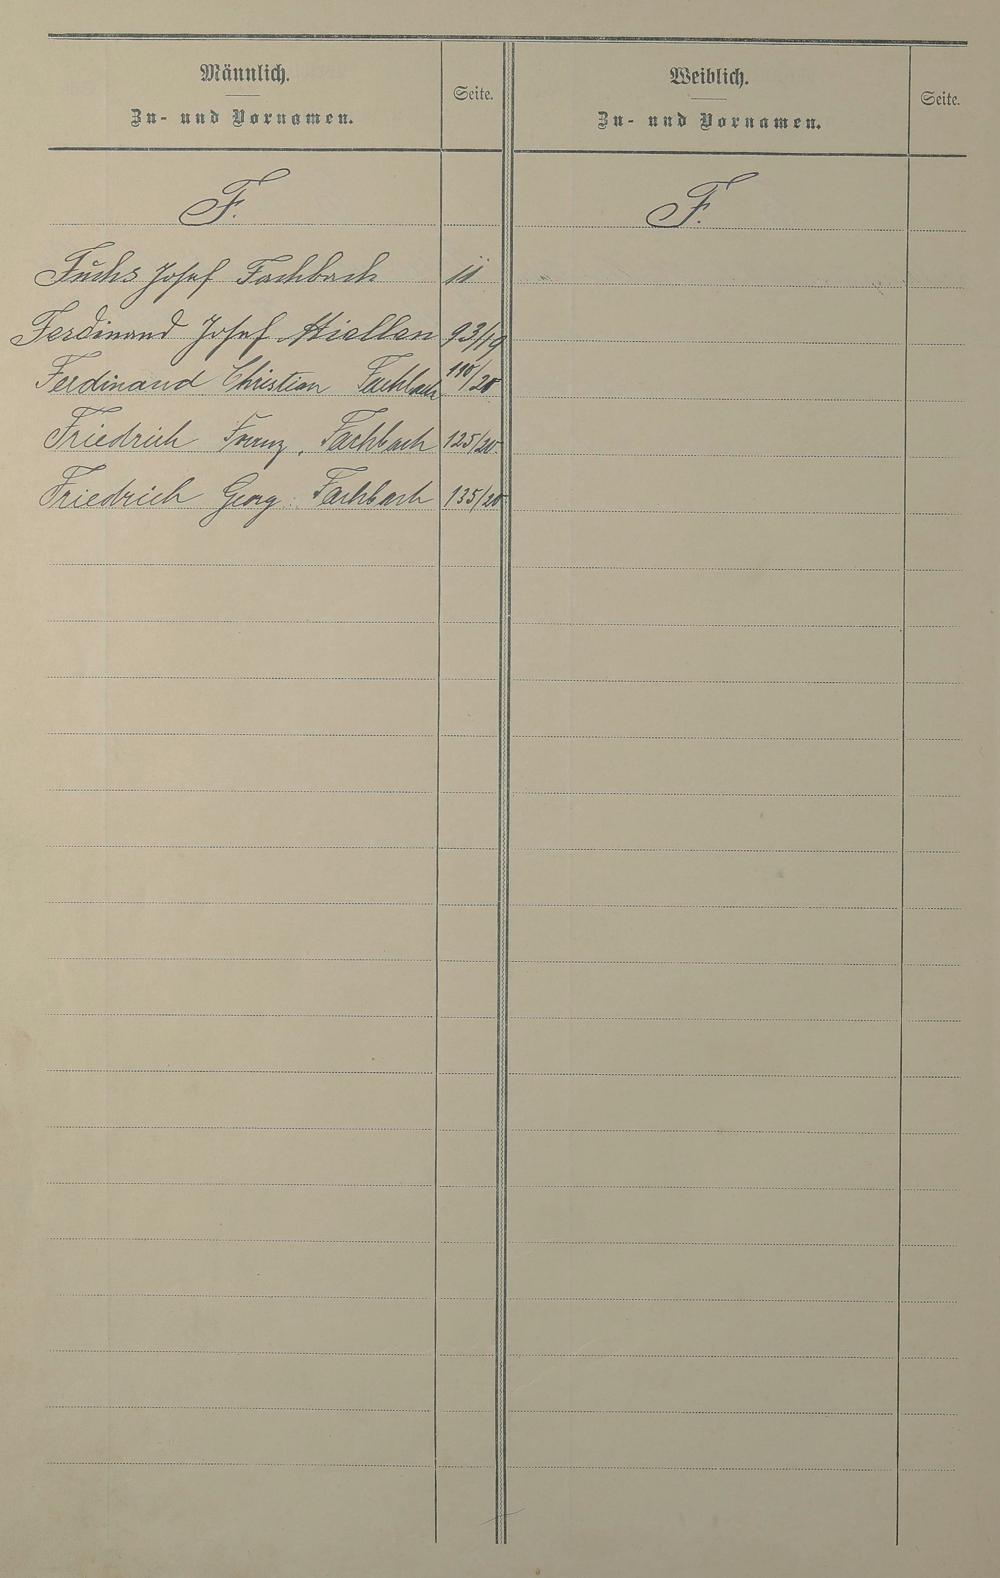 Männlich.
Zu- und Vornamen.
Seite.
Weiblich.
Zu- und Vornamen.
Seite.
F.
F.
Fuchs Josef Fachbach 11
Ferdinand Josef Miellen 93/19
Ferdinand Christian Fachbach 110/20
Friedrich Franz, Fachbach 125/20
Friedrich Georg Fachbach 135/20